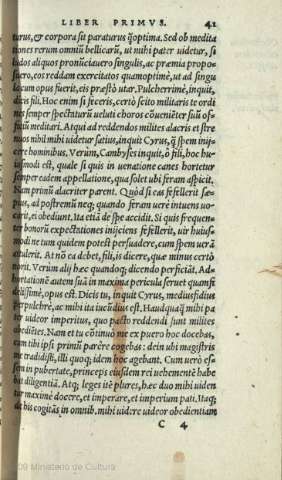 LIBER PRIMVS. 41
turus, & corpora sit paraturus q̃optima. Sed ob medita
tiones rerum omniũ bellicarũ, ut mihi pater uidetur, si
ludos aliquos pronũciauero singulis, ac præmia propo-
suero, eos reddam exercitatos quamoptimè, ut ad singu
la cum opus fuerit, eis præstò utar. Pulcherrimè, inquit,
dicis fili. Hoc enim si feceris, certò scito militaris te ordi
nes semper spectaturũ ueluti choros cõueniẽter suũ of-
ficiũ meditari. Atqui ad reddendos milites alacris et stre
nuos nihil mihi uidetur satius, inquit Cyrus, q̃ spem inij-
cere hominibus. Verùm, Cambyses inquit, ò fili, hoc hu-
iusmodi est, quale si quis in uenatione canes hortetur
semper eadem appellatione, qua solet ubi feram aspicit.
Nam primũ alacriter parent. Quòd si eas fefellerit sæ-
pius, ad postremũ neq; quando feram uerè intuens uo-
carit, ei obediunt. Ita etiã de spe accidit. Si quis frequen-
ter bonorũ expectationes inijciens fefellerit, uir huius-
modi ne tum quidem potest persuadere, cum spem uerã
attulerit. At nõ ea debet, fili, is dicere, quæ minus certò
norit. Verùm alij hæc quandoq; dicendo perficiãt. Ad-
hortationẽ autem suã in maxima pericula seruet quamfi
delissimè, opus est. Dicis tu, inquit Cyrus, mediusfidius
perpulchrè, ac mihi ita iucũdius est. Haudquaq̃ mihi pa
ter uideor imperitus, quo pacto reddendi sunt milites
obediẽtes. Nam et tu cõtinuò me ex puero hoc docebas,
cum tibi ipsi primũ parère cogebas: dein ubi magistris
me tradidisti, illi quoq; idem hoc agebant. Cum uerò es-
sem in pubertate, princeps eiusdem rei uehementè habe
bat diligentiã. Atq; leges itẽ plures, hæc duo mihi uiden
tur maximè docere, et imperare, et imperium pati. Itaq;
ubi his cogitãs in omnib. mihi uidere uideor obedientiam
C 4
09 Ministerio de Cultura